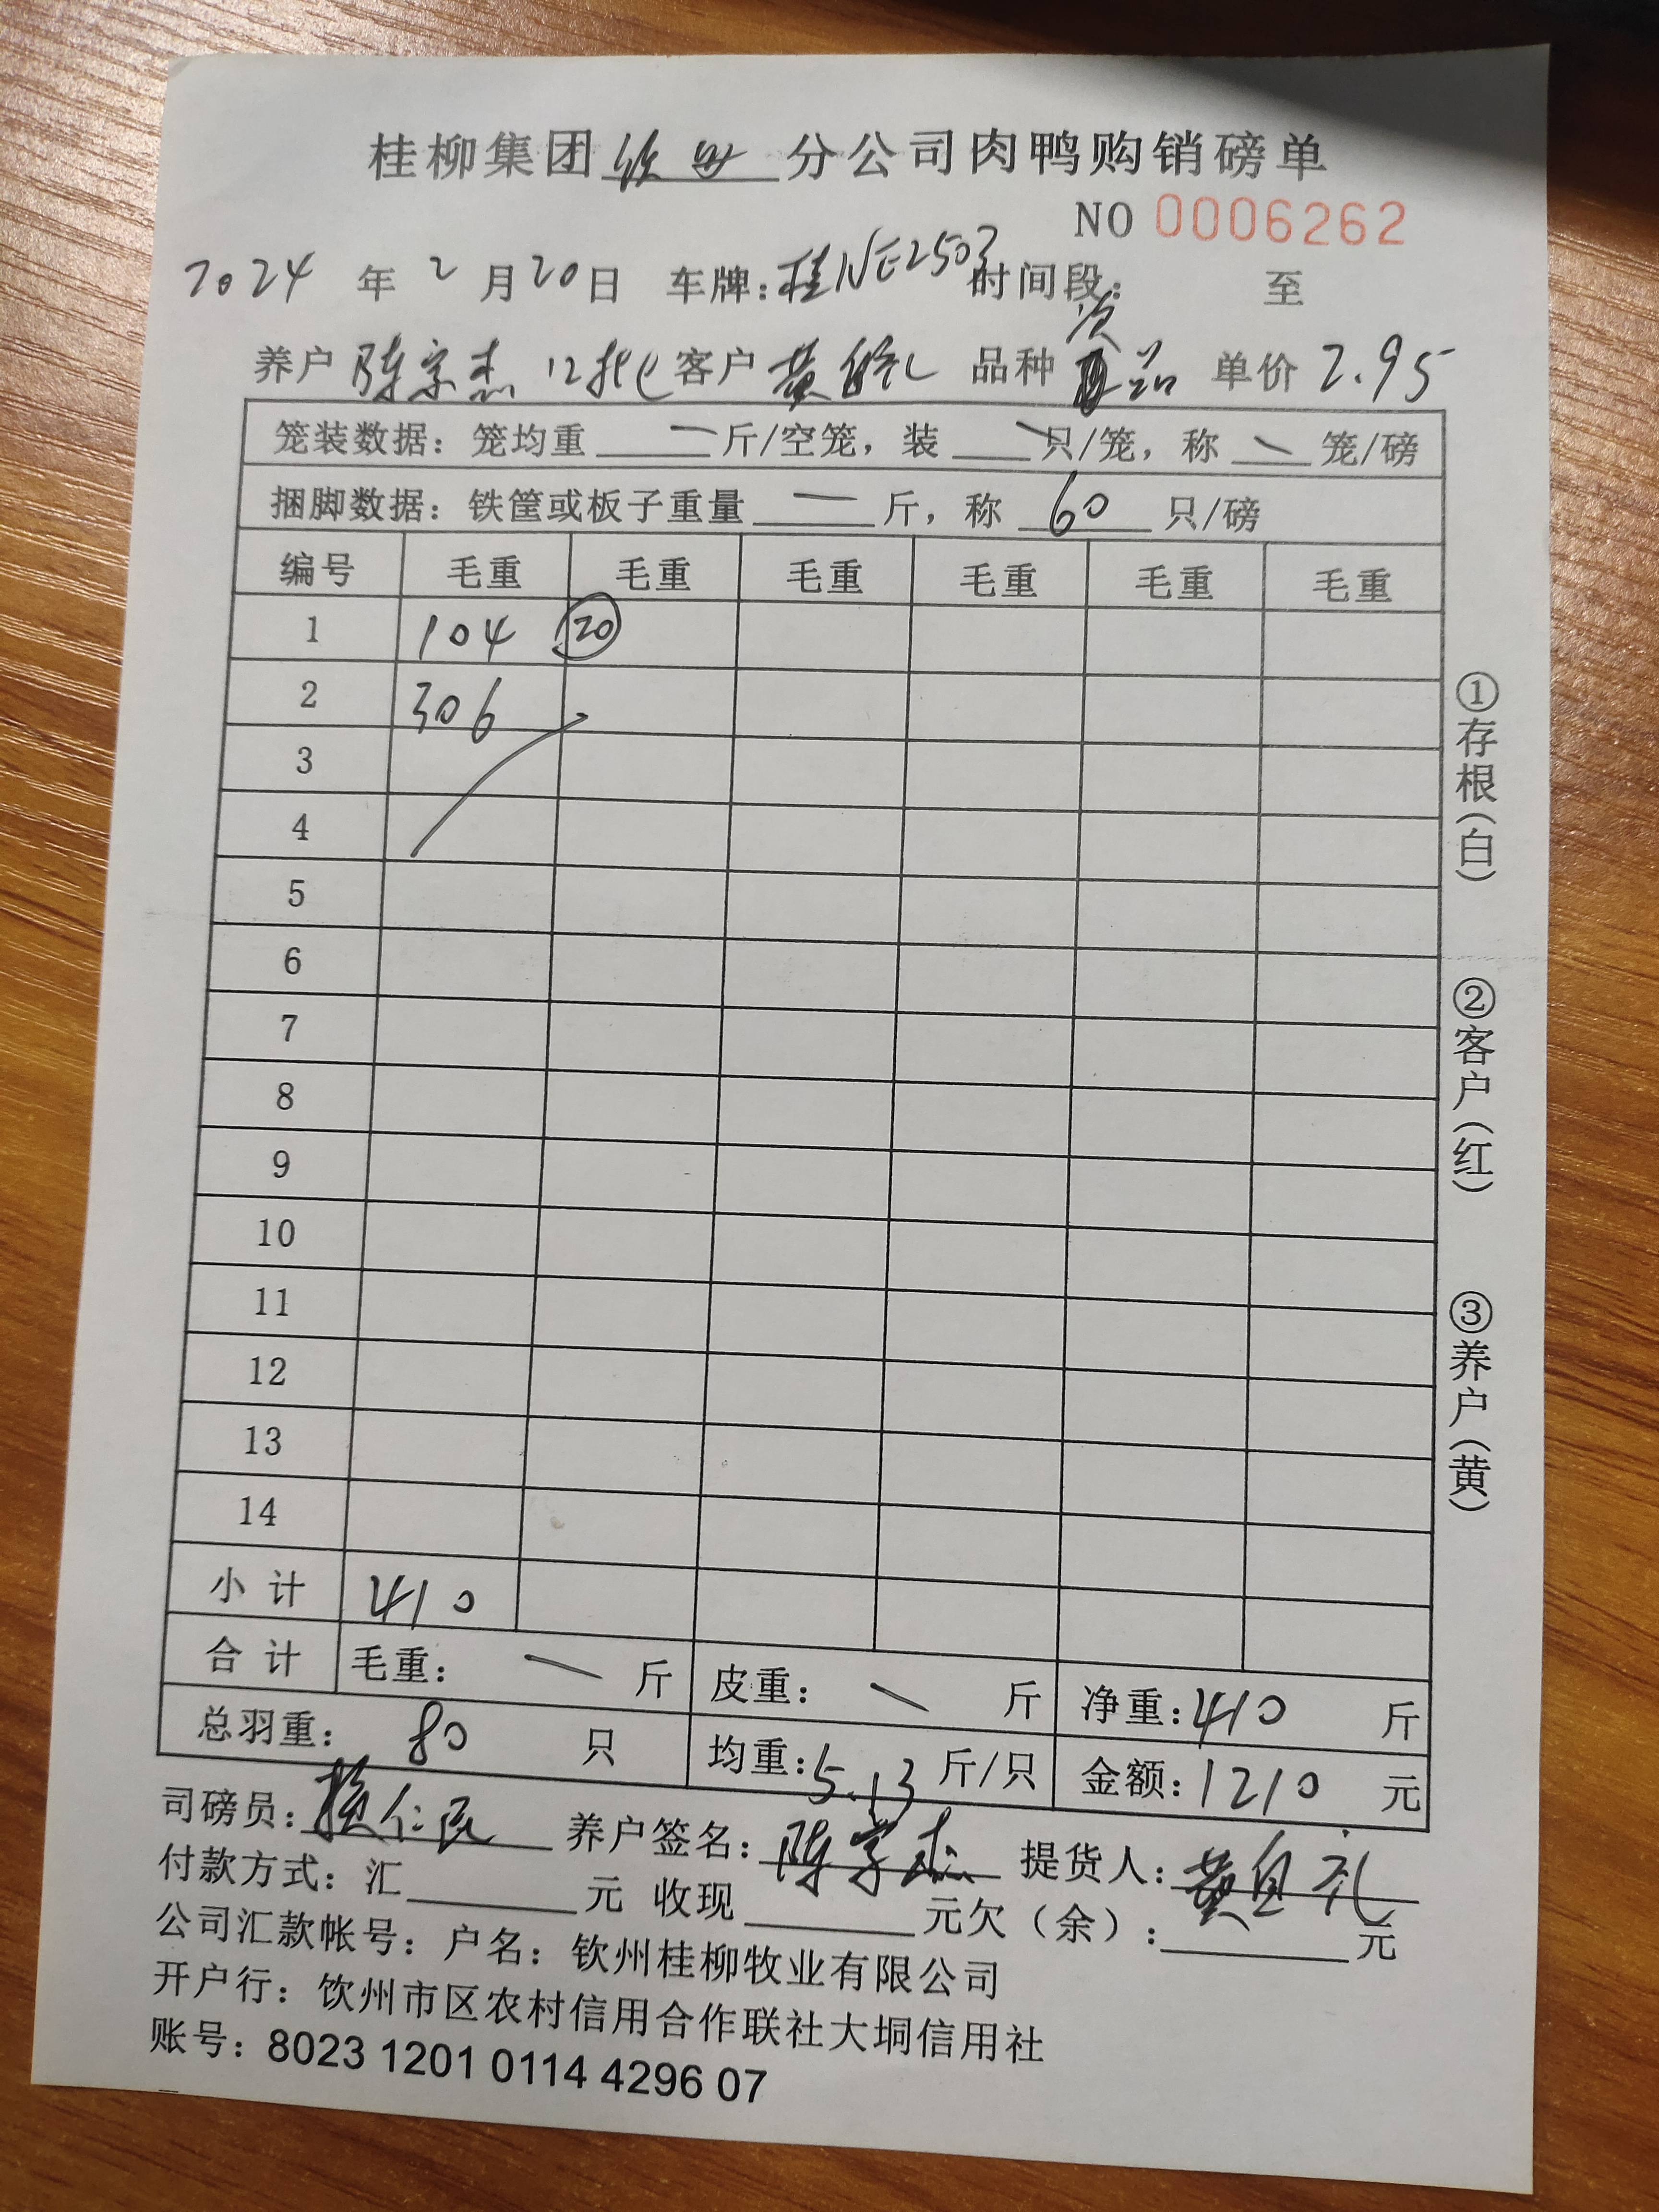 桂柳集团 钦州 分公司肉鸭购销磅单
NO 0006262
2024 年 2 月 20 日 车牌：桂NE2503 时间段： 至
养户 陈宗杰 12批 客户 黄 品种 次品 单价 2.95
笼装数据：笼均重 — 斤/空笼，装 — 只/笼，称 — 笼/磅
捆脚数据：铁筐或板子重量 — 斤，称 60 只/磅
编号 毛重 毛重 毛重 毛重 毛重 毛重
1 104 20
2 306
3
4
5
6
7
8
9
10
11
12
13
14
小 计 410
合 计 毛重： — 斤 皮重： — 斤 净重：410 斤
总羽重： 80 只 均重：5.13 斤/只 金额：1210 元
司磅员：仁民 养户签名：陈宗杰 提货人：黄自礼
付款方式：汇 元 收现 元欠（余）： 元
公司汇款帐号：户名：钦州桂柳牧业有限公司
开户行：饮州市区农村信用合作联社大垌信用社
账号：8023 1201 0114 4296 07
①存根（白）
②客户（红）
③养户（黄）